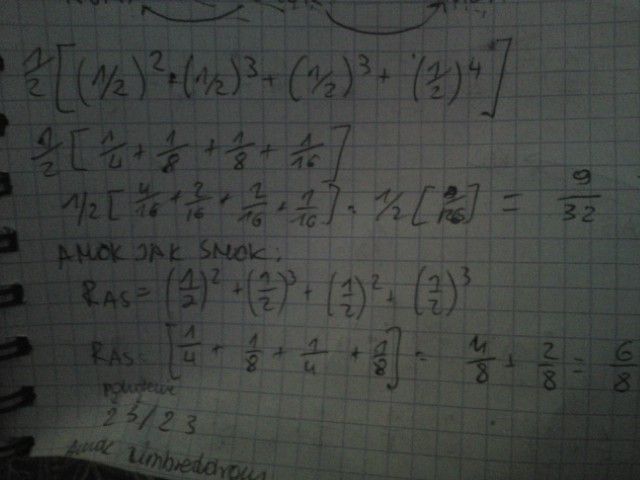 1/2 [(1/2)^2 + (1/2)^3 + (1/2)^3 + (1/2)^4]
1/2 [1/4 + 1/8 + 1/8 + 1/16]
1/2 [4/16 + 2/16 + 2/16 + 1/16] = 1/2 [9/16] = 9/32
AMOK JAK SMOK:
RAS = (1/2)^2 + (1/2)^3 + (1/2)^2 + (1/2)^3
RAS = [1/4 + 1/8 + 1/4 + 1/8] = 4/8 + 2/8 = 6/8
23/23